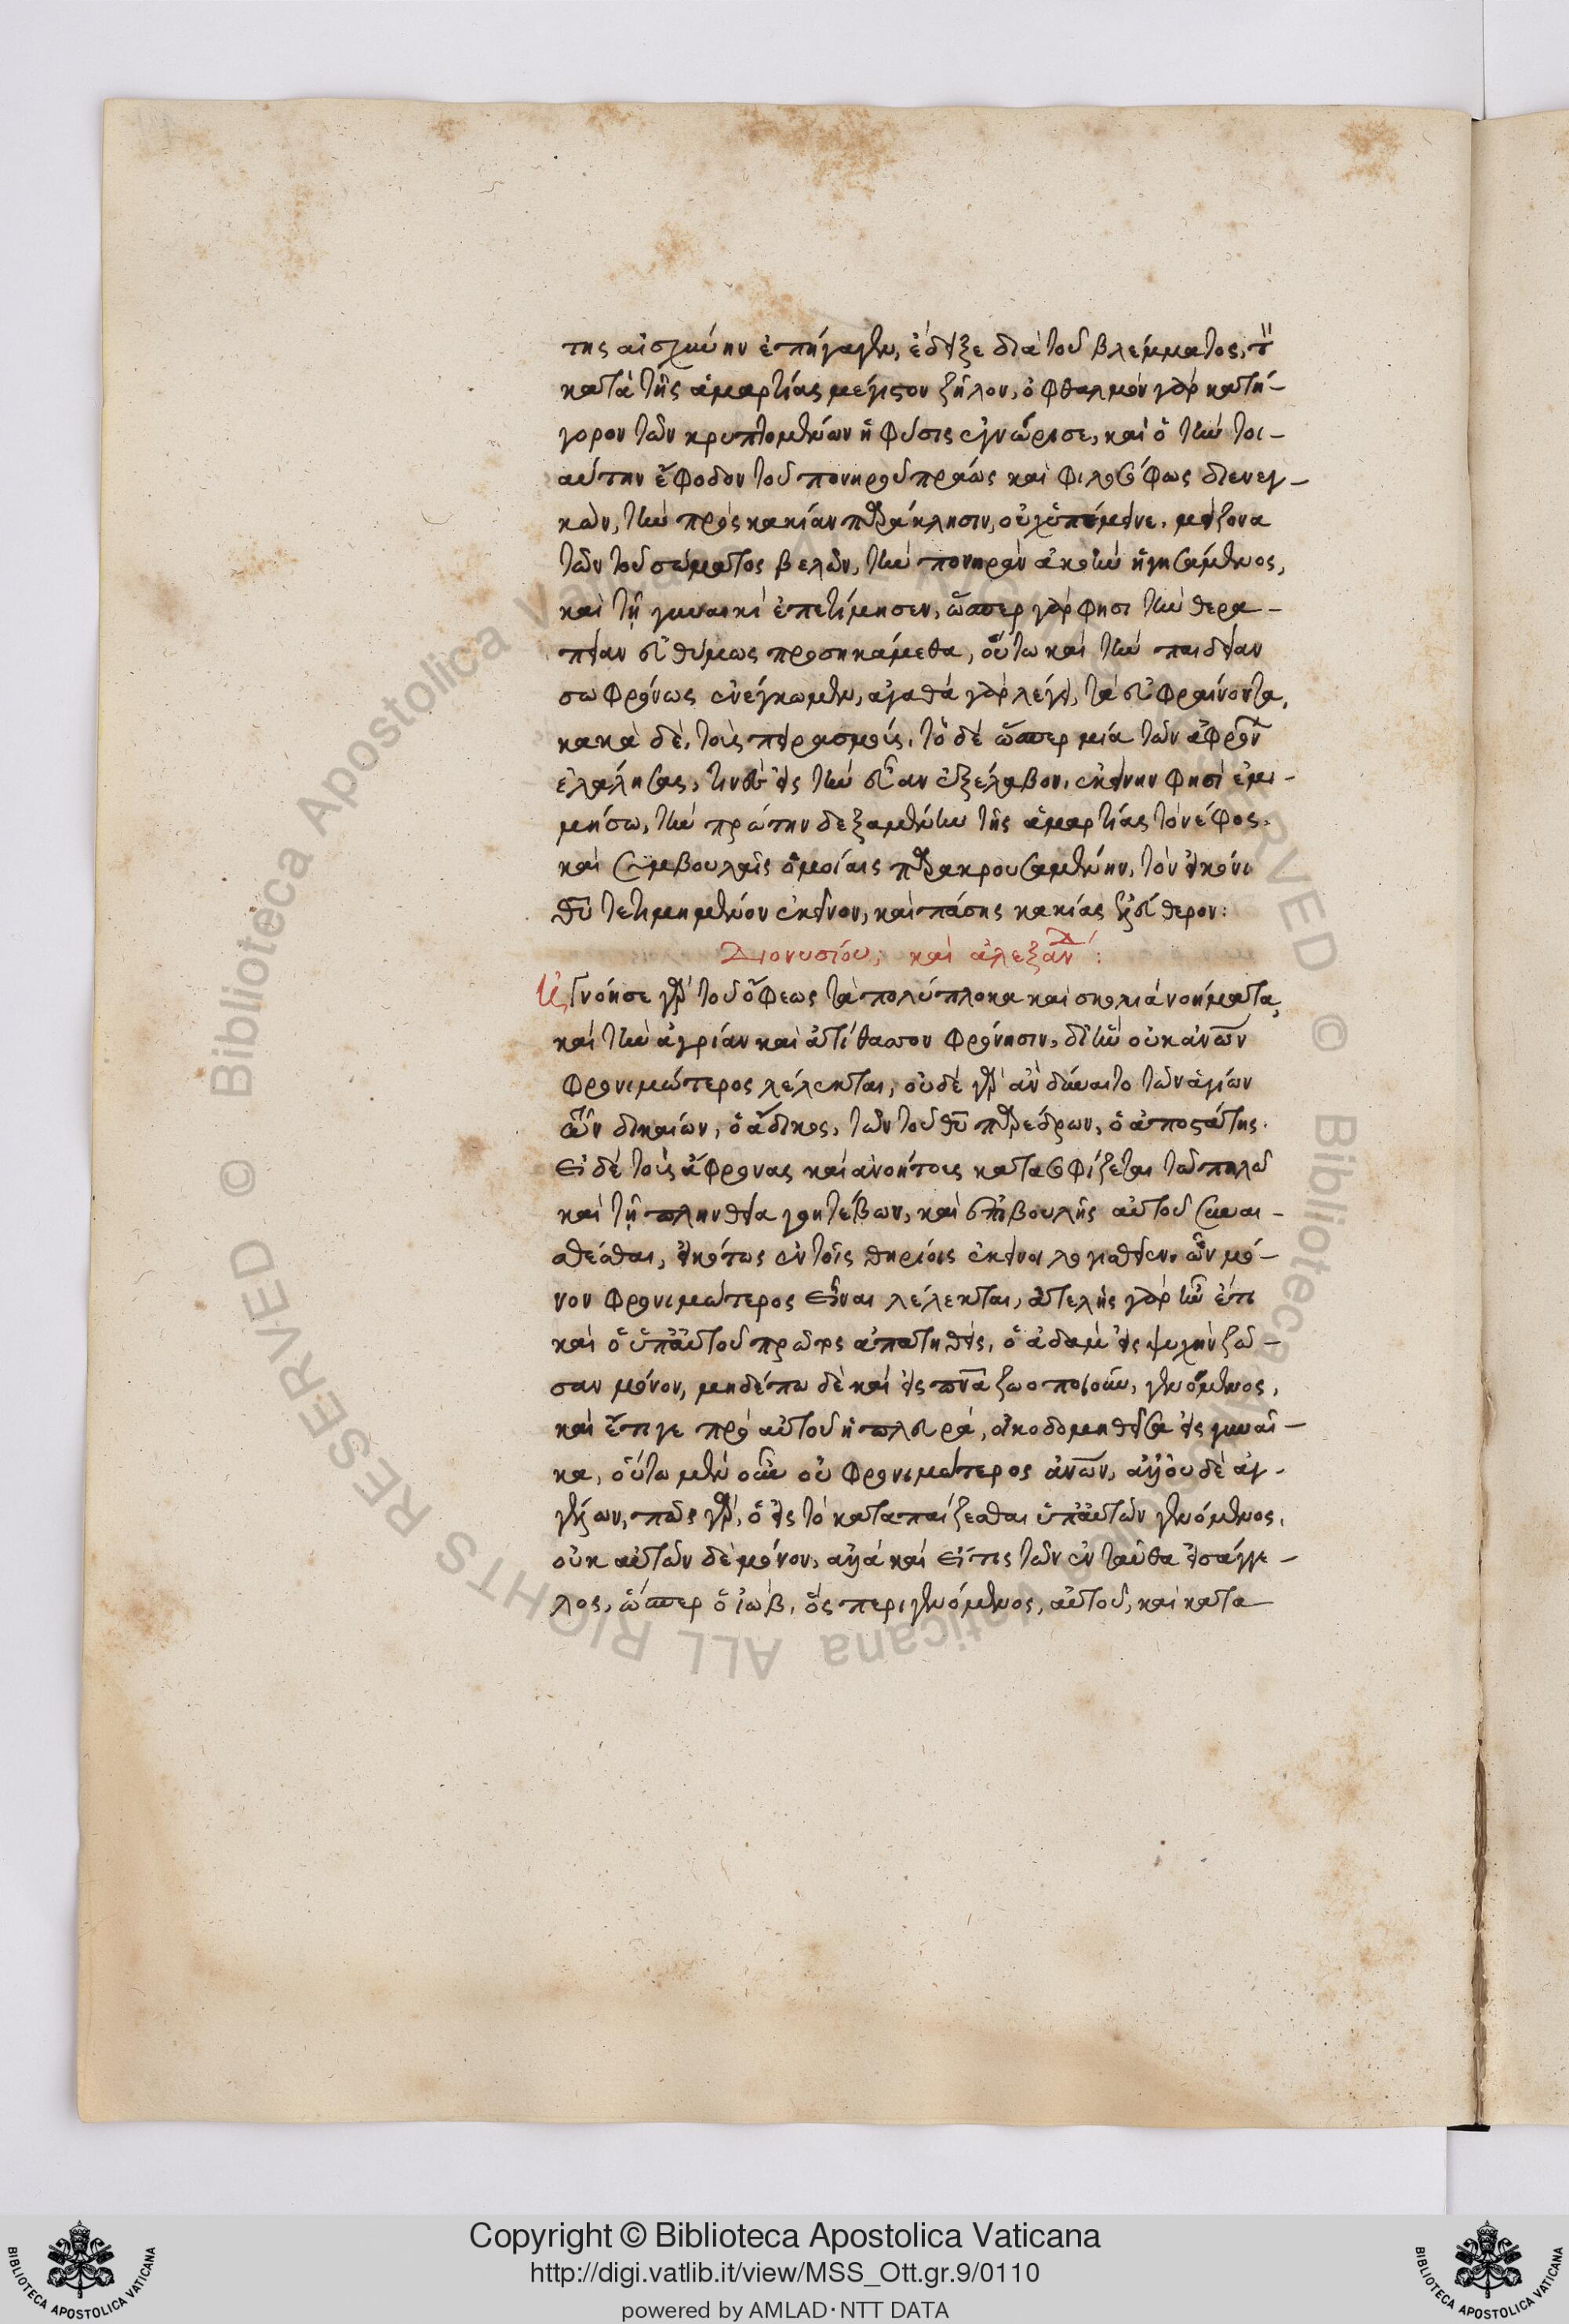 της αἰσχύνην ἐπήγαγεν, ἔδειξε διὰ τοῦ βλέμματος, τὸν
κατὰ τῆς ἁμαρτίας μέγιστον ζῆλον, ὀφθαλμὸν γὰρ κατή-
γορον τῶν κρυπτομένων ἡ φύσις ἐγνώρισε, καὶ ὁ τὴν τοι-
αύτην ἔφοδον τοῦ πονηροῦ πράως καὶ φιλοσόφως διενεγ-
κὼν, τὴν πρὸς κακίαν παράκλησιν, οὐχ ὑπέμεινε. μείζονα
τῶν τοῦ σώματος βελῶν, τὴν πονηρὰν ἀκοὴν ἡγησάμενος,
καὶ τῇ γυναικὶ ἐπετίμησεν, ὥσπερ γάρ φησι τὴν θερα-
πείαν εὐθύμως προσηκάμεθα, οὕτω καὶ τὴν παιδείαν
σωφρόνως ἐνέγκωμεν, ἀγαθὰ γὰρ λέγει, τὰ εὐφραίνοντα,
κακὰ δὲ, τοὺς πειρασμούς. τὸ δὲ ὥσπερ μία τῶν ἀφρόν
ἐλάλησας, τινὲς εἰς τὴν εὔαν ἐξέλαβον, ἐκείνην φησὶ ἐμι-
μήσω, τὴν πρώτην δεξαμένην τῆς ἁμαρτίας τὸ νέφος.
καὶ συμβουλαῖς ὁμοίαις παρακρουσαμένην, τὸν εἰκόνι
θυ τετιμημένον ἐκεῖνον, καὶ πάσης κακίας ἐλεύθερον:
Διονυσίου, καὶ ἀλεξαν δ:
Ἐνόησε γὰρ τοῦ ὄφεως τὰ πολύπλοκα καὶ σκολιὰ νοήματα,
καὶ τὴν ἀγρίαν καὶ ἀτίθασον φρόνησιν, δι' ἣν οὐκ ἀνων
φρονιμώτερος λέλεκται, οὐδὲ γὰρ ἂν δύναιτο τῶν ἁγίων
ὢν δικαίων, ὁ ἄδικος, τῶν τοῦ θυ παρέδρων, ὁ ἀποστάτης.
εἰ δὲ τοὺς ἄφρονας καὶ ἀνοήτους κατασοφίζεται τῷ πηλῷ
καὶ τῇ πλινθεία γοητεύων, καὶ ἐπιβουλῆς αὐτοῦ συναι-
σθέσθαι, εἰκότως ἐν τοῖς θηρίοις ἐκεῖνοι λογισθεῖεν. ὧν μό-
νον φρονιμώτερος εἶναι λέλεκται, ἀτελὴς γὰρ ἦν ἔτι
καὶ ὁ ὑπ' αὐτοῦ πρῶτος ἀπατηθεὶς, ὁ ἀδὰμ εἰς ψυχὴν ζῶ-
σαν μόνον, μηδέπω δὲ καὶ εἰς πνα ζωοποιοῦν, γενόμενος,
καὶ ἔτι γε πρὸ αὐτοῦ ἡ πλευρά, οἰκοδομηθεῖσα εἰς γυναῖ-
κα, οὕτω μὲν οὖν οὐ φρονιμώτερος ἀνων, ἀλλ' οὐδὲ ἀγ-
γέλων, πῶς γὰρ, ὁ εἰς τὸ καταπαίζεσθαι ὑπ' αὐτῶν γενόμενος,
οὐκ αὐτῶν δὲ μόνον, ἀλλὰ καὶ εἴ τις τῶν ἐνταῦθα ἰσάγγε-
λος, ὥσπερ ὁ ἰὼβ, ὃς περιγενόμενος, αὐτοῦ, καὶ κατα
Copyright © Biblioteca Apostolica Vaticana
http://digi.vatlib.it/view/MSS_Ott.gr.9/0110
powered by AMLAD·NTT DATA